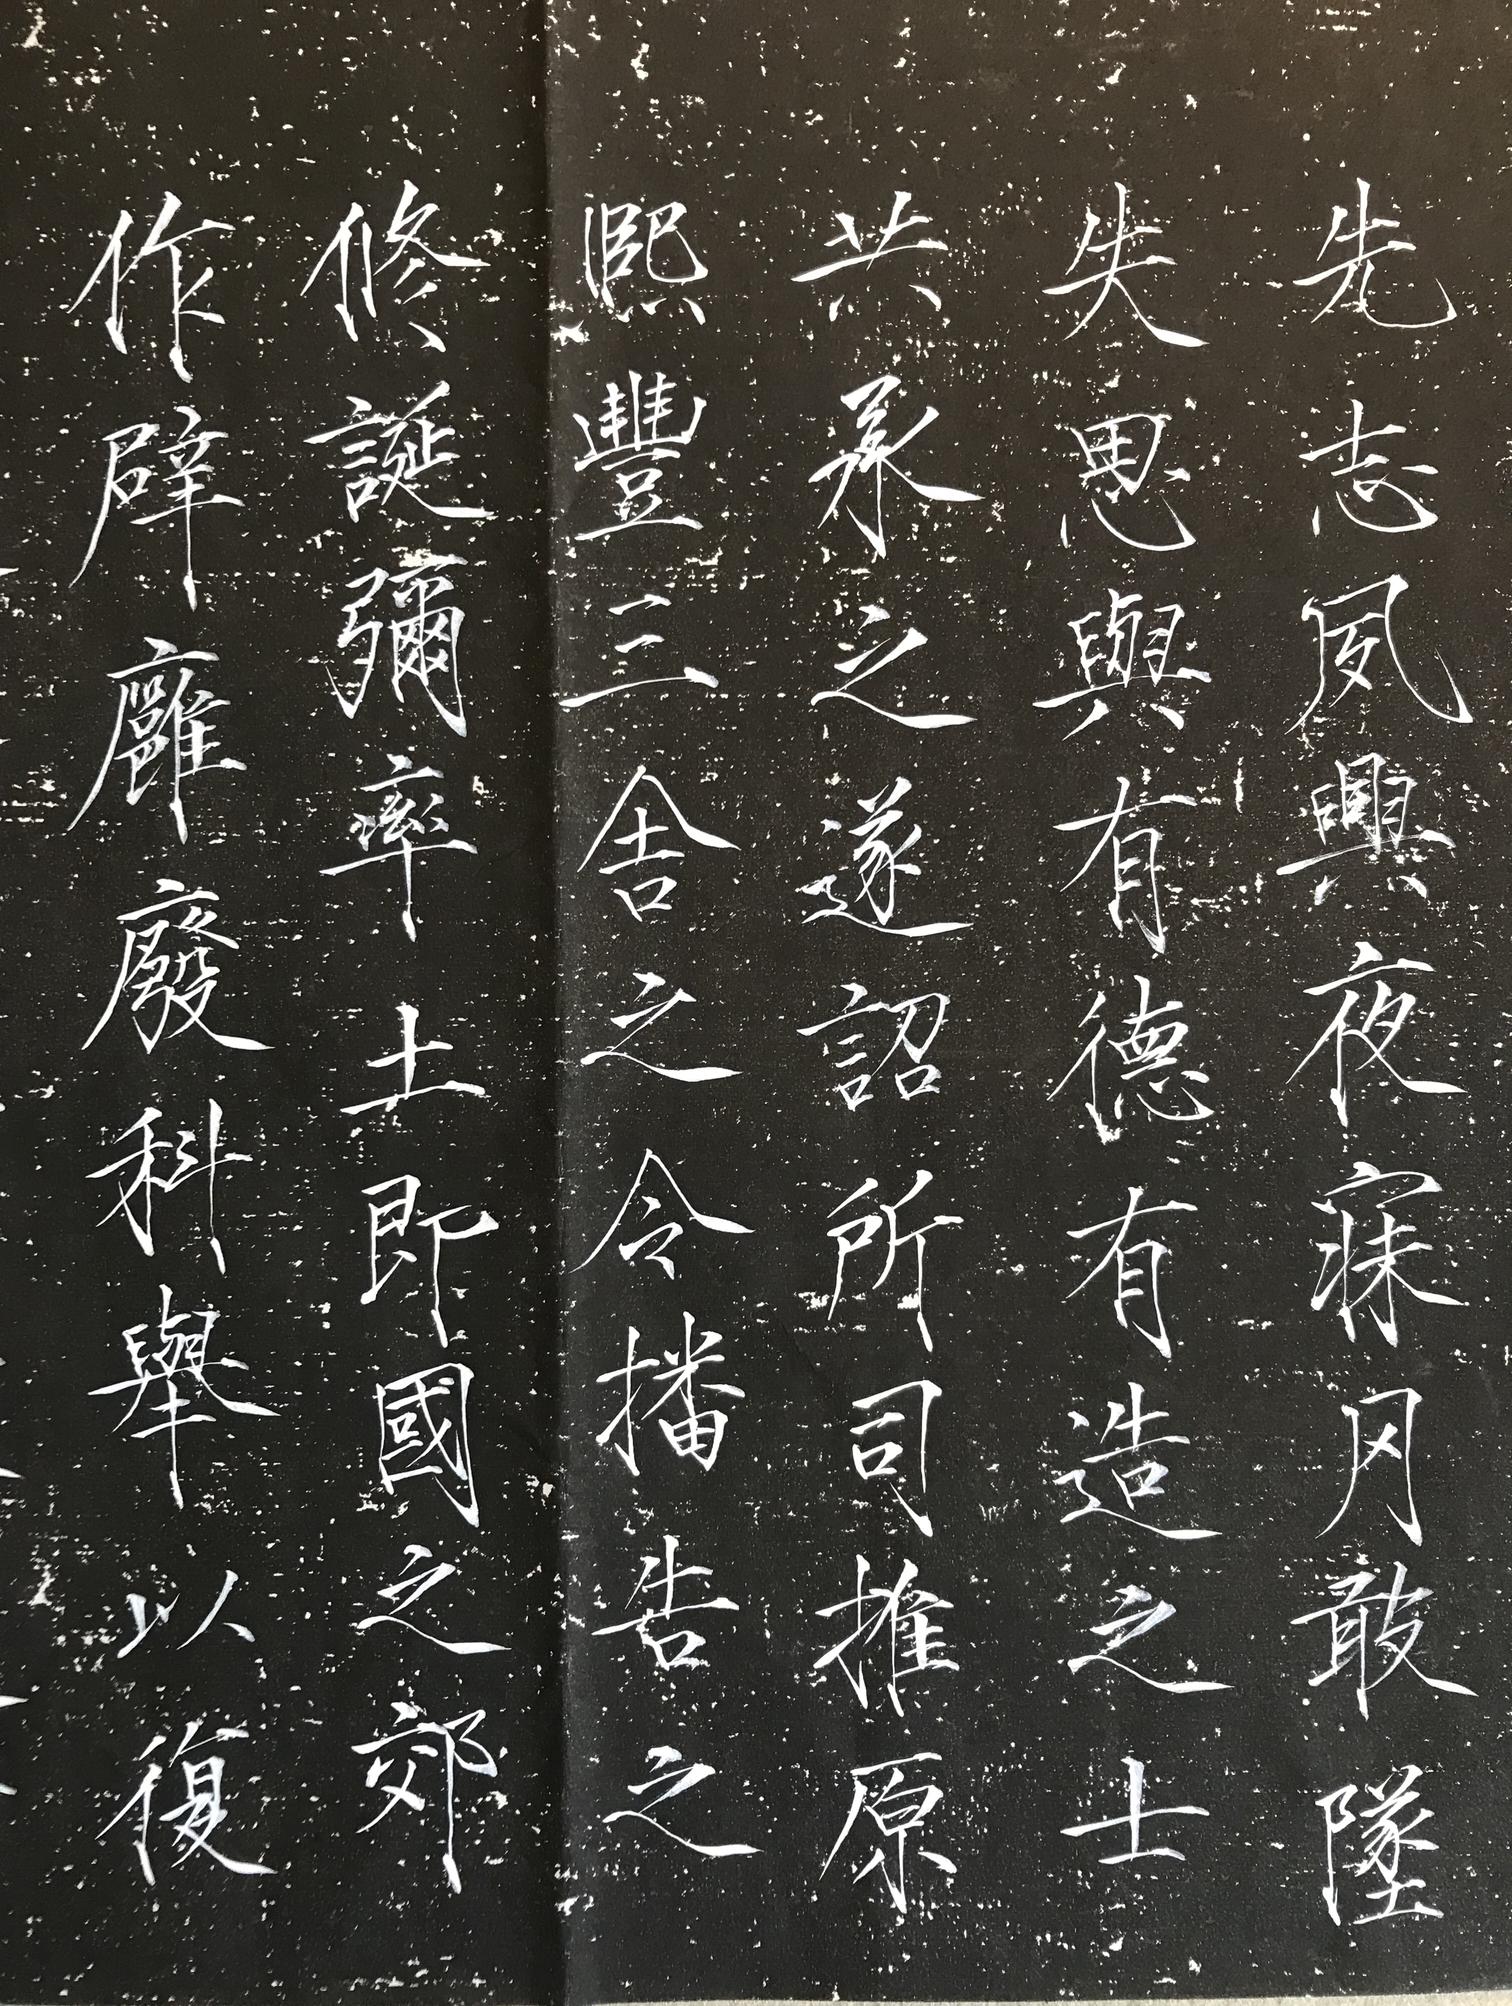 先志夙興夜寐罔敢墜
失思與有德有造之士
共承之遂詔所司推原
熙豐三舍之令播告之
修誕彌率土即國之郊
作辟廱廢科舉以復